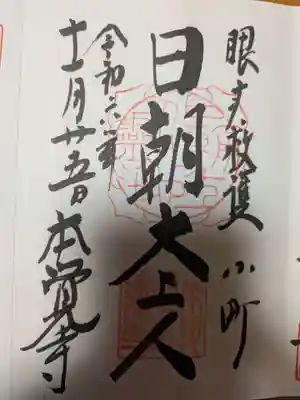 眼病救護 小町
日朝大上人
令和六年
十二月廿五日 本覚寺